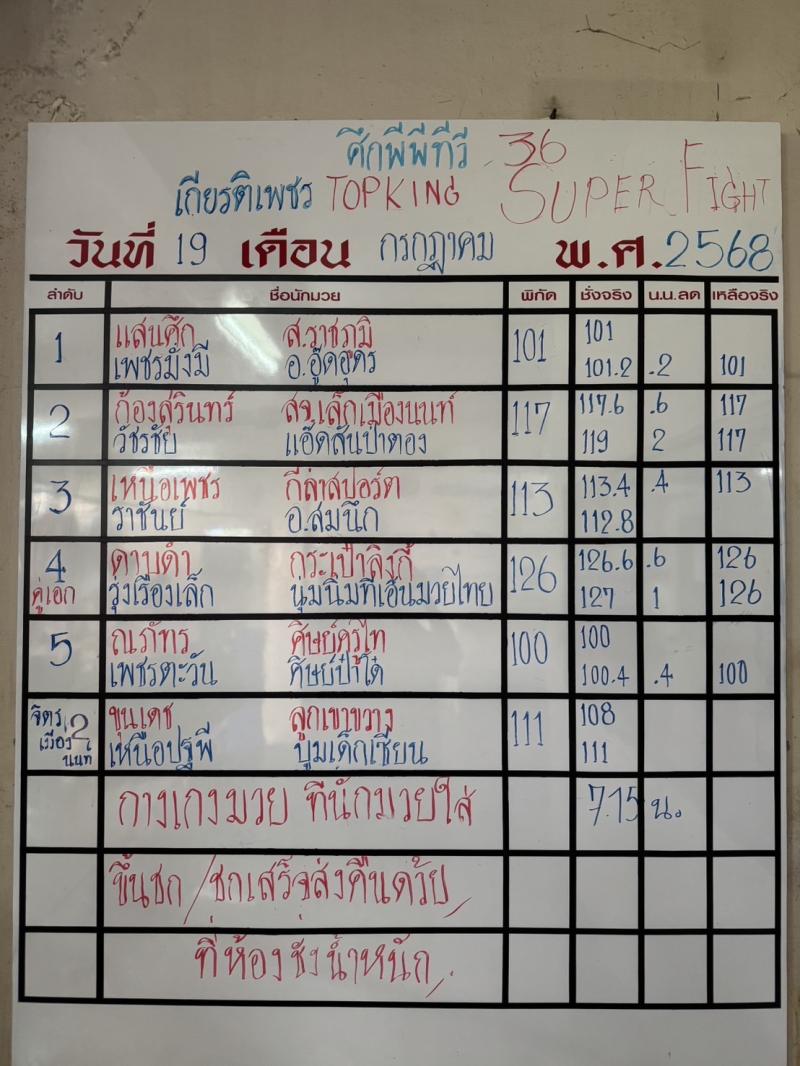 ศึกพีพีทีวี 36
เกียรติเพชร TOPKING SUPER FIGHT
วันที่ 19 เดือน กรกฎาคม พ.ศ. 2568
ลำดับ ชื่อนักมวย พิกัด ชั่งจริง น.น.ลด เหลือจริง
1 แสนศึก ส.ราชภูมิ 101 101
เพชรมั่งมี อ.อู๊ดอุดร 101.2 .2 101
2 ก้องสุรินทร์ สจ.เล็กเมืองนนท์ 117 117.6 .6 117
วัชรชัย แอ๊ดสันป่าตอง 119 2 117
3 เหนือเพชร กีล่าสปอร์ต 113 113.4 .4 113
ราชันย์ อ.สมนึก 112.8
4 ดาบดำ กระเป๋าลิงกี้ 126 126.6 .6 126
คู่เอก รุ่งเรืองเล็ก นุ่มนิ่มทีเอ็นมวยไทย 127 1 126
5 ณภัทร ศิษย์ครูไท 100 100
เพชรตะวัน ศิษย์ป๋าโต๋ 100.4 .4 100
จิตรเมืองนนท์ 2 ขุนเดช ลูกเขาขวาง 111 108
เหนือปฐพี บูมเด็กเซียน 111
กางเกงมวย ที่นักมวยใส่ 7.15 น.
ขึ้นชก / ชกเสร็จส่งคืนด้วย
ที่ห้องชั่งน้ำหนัก